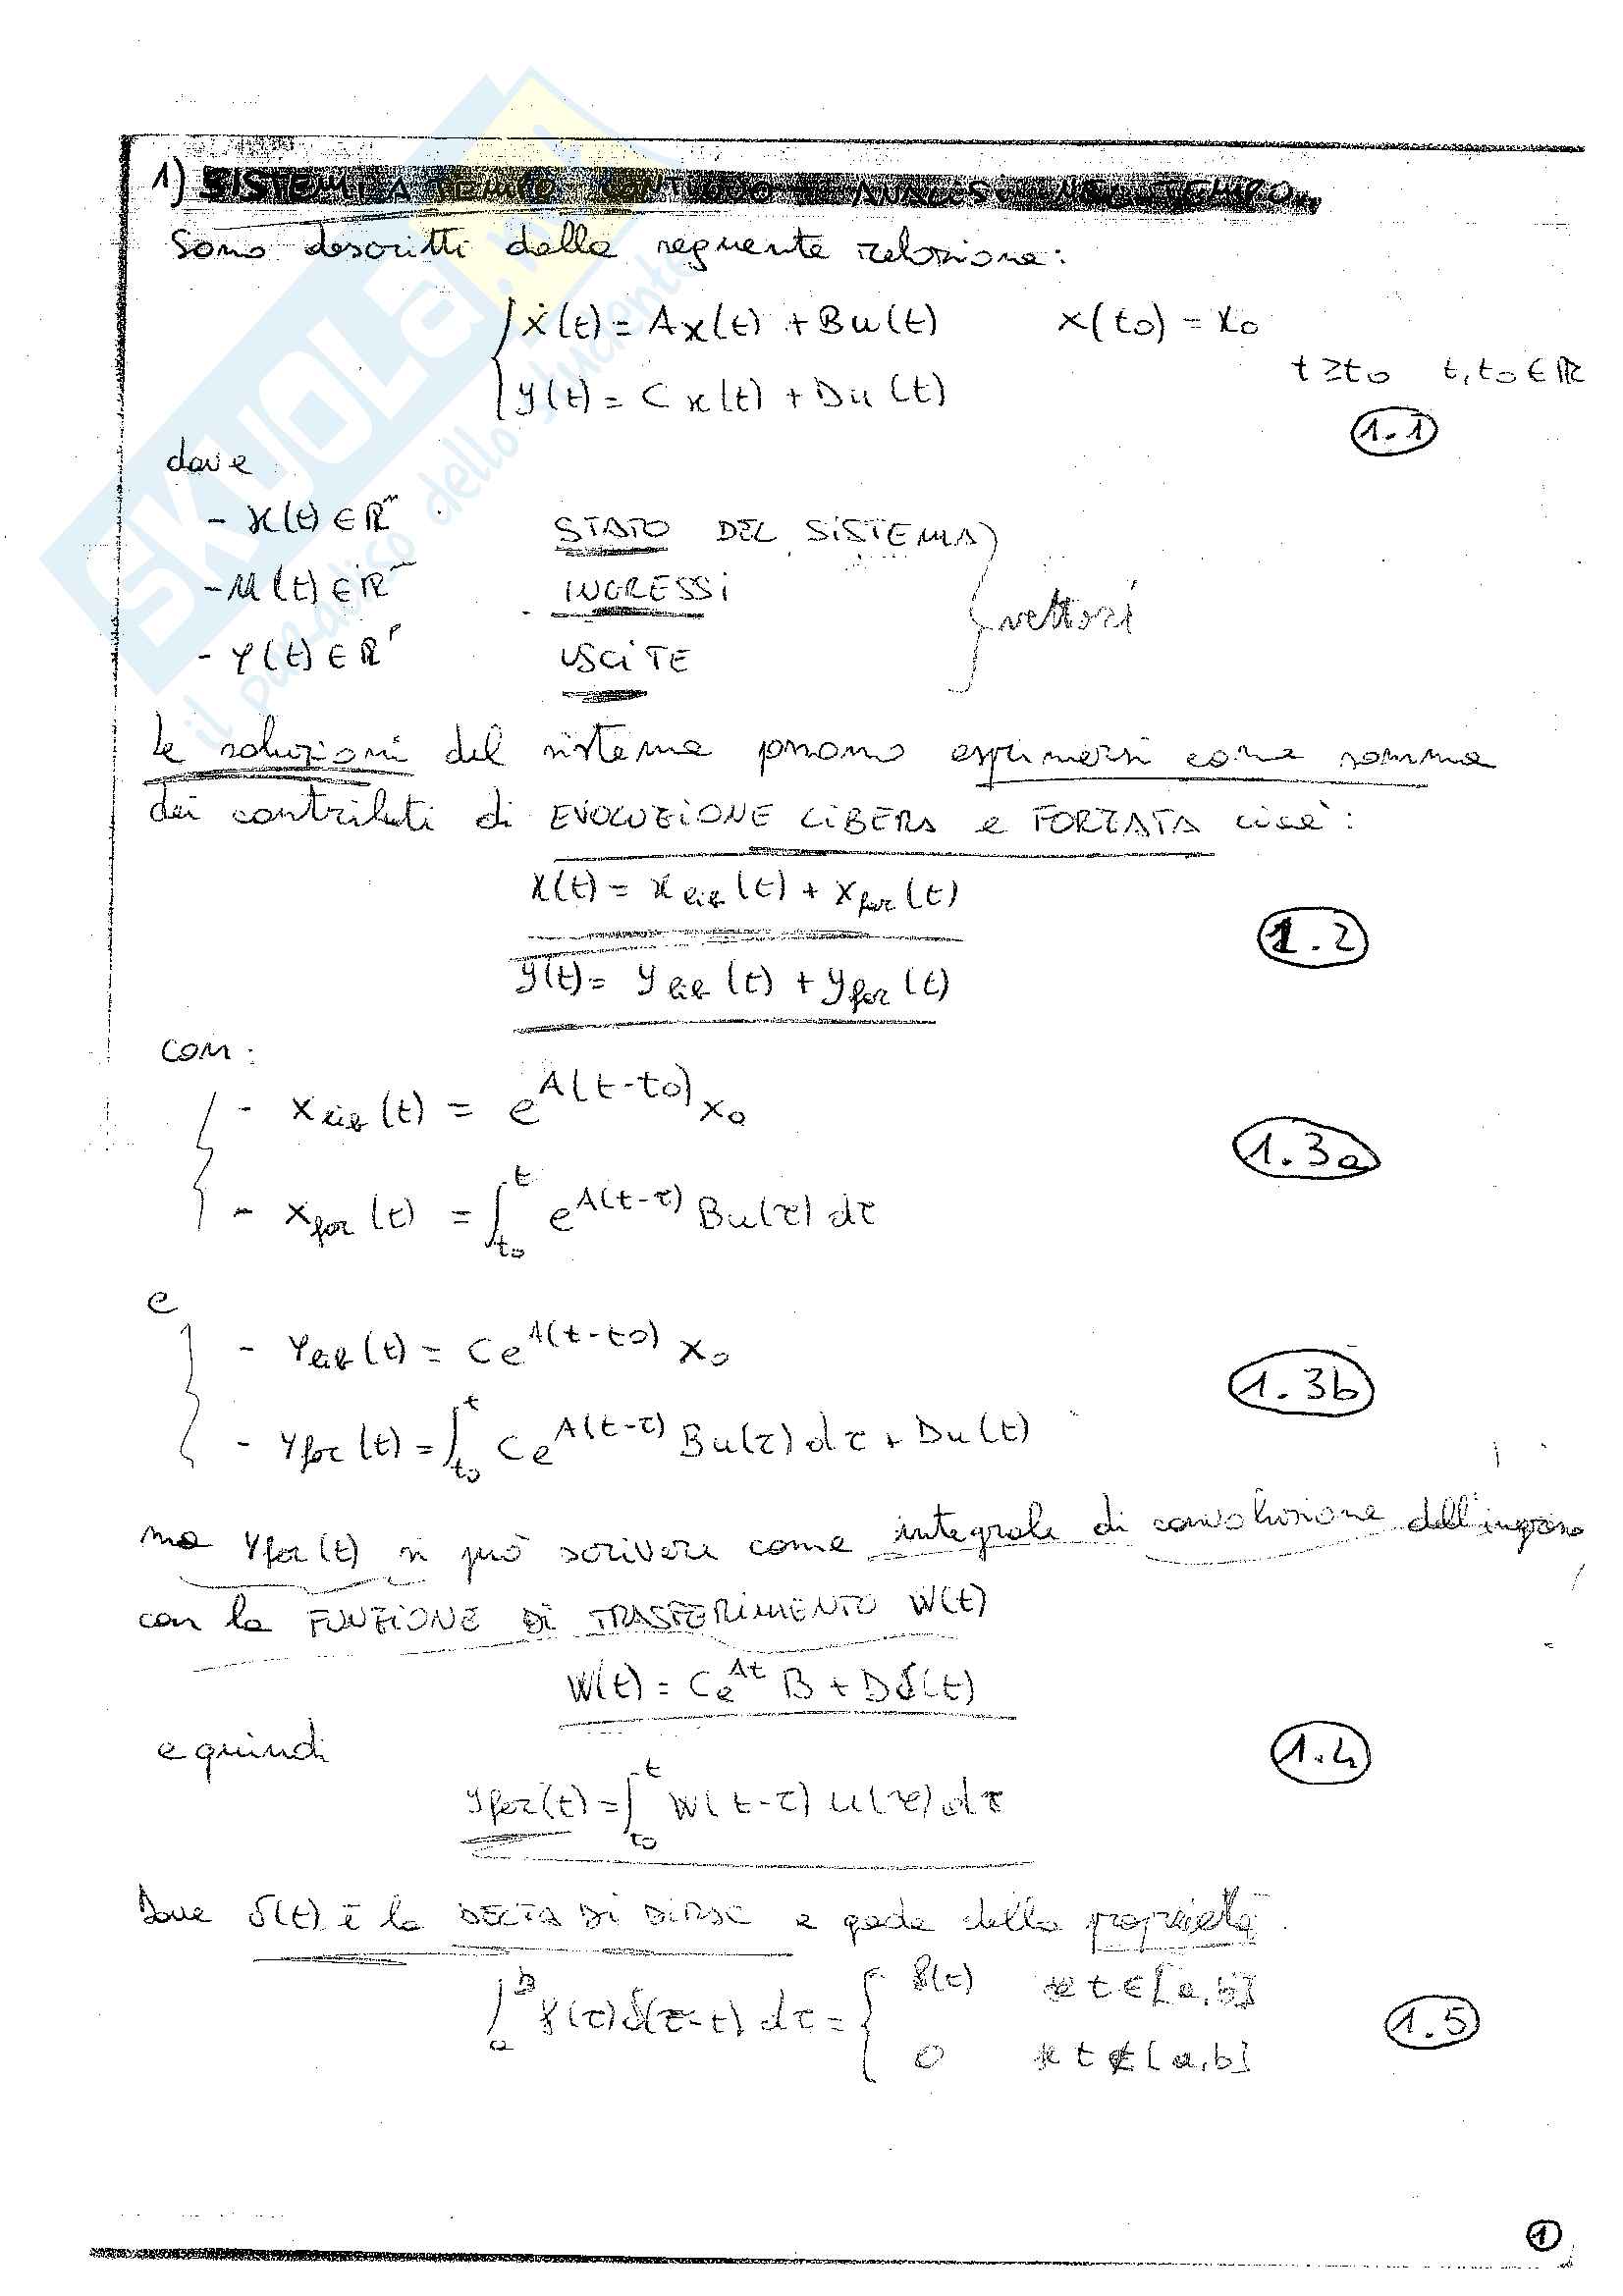 1) SISTEMI A TEMPO CONTINUO - ANALISI NEL TEMPO
Sono descritti dalla seguente relazione:
ẋ(t) = Ax(t) + Bu(t)    x(t0) = x0
t ≥ t0   t, t0 ∈ ℝ
y(t) = Cx(t) + Du(t)
1.1
dove
- x(t) ∈ ℝⁿ   STATO DEL SISTEMA
- u(t) ∈ ℝᵐ   INGRESSI
vettori
- y(t) ∈ ℝᵖ   USCITE
Le soluzioni del sistema possono esprimersi come somma
dei contributi di EVOLUZIONE LIBERA e FORZATA cioè:
x(t) = x_lib(t) + x_for(t)
1.2
y(t) = y_lib(t) + y_for(t)
con:
- x_lib(t) = e^{A(t-t0)} x0
1.3a
- x_for(t) = ∫_{t0}^{t} e^{A(t-τ)} Bu(τ) dτ
e
- y_lib(t) = Ce^{A(t-t0)} x0
1.3b
- y_for(t) = ∫_{t0}^{t} Ce^{A(t-τ)} Bu(τ) dτ + Du(t)
ma y_for(t) si può scrivere come integrale di convoluzione dell'ingresso
con la FUNZIONE DI TRASFERIMENTO W(t)
W(t) = Ce^{At} B + Dδ(t)
e quindi
1.4
y_for(t) = ∫_{t0}^{t} W(t-τ) u(τ) dτ
Dove δ(t) è la DELTA DI DIRAC e gode della proprietà
∫_{a}^{b} f(τ)δ(τ-t) dτ = { f(t)   se t ∈ [a,b]
0   se t ∉ [a,b]
1.5
1
SKUOLA.net
il paradiso dello studente